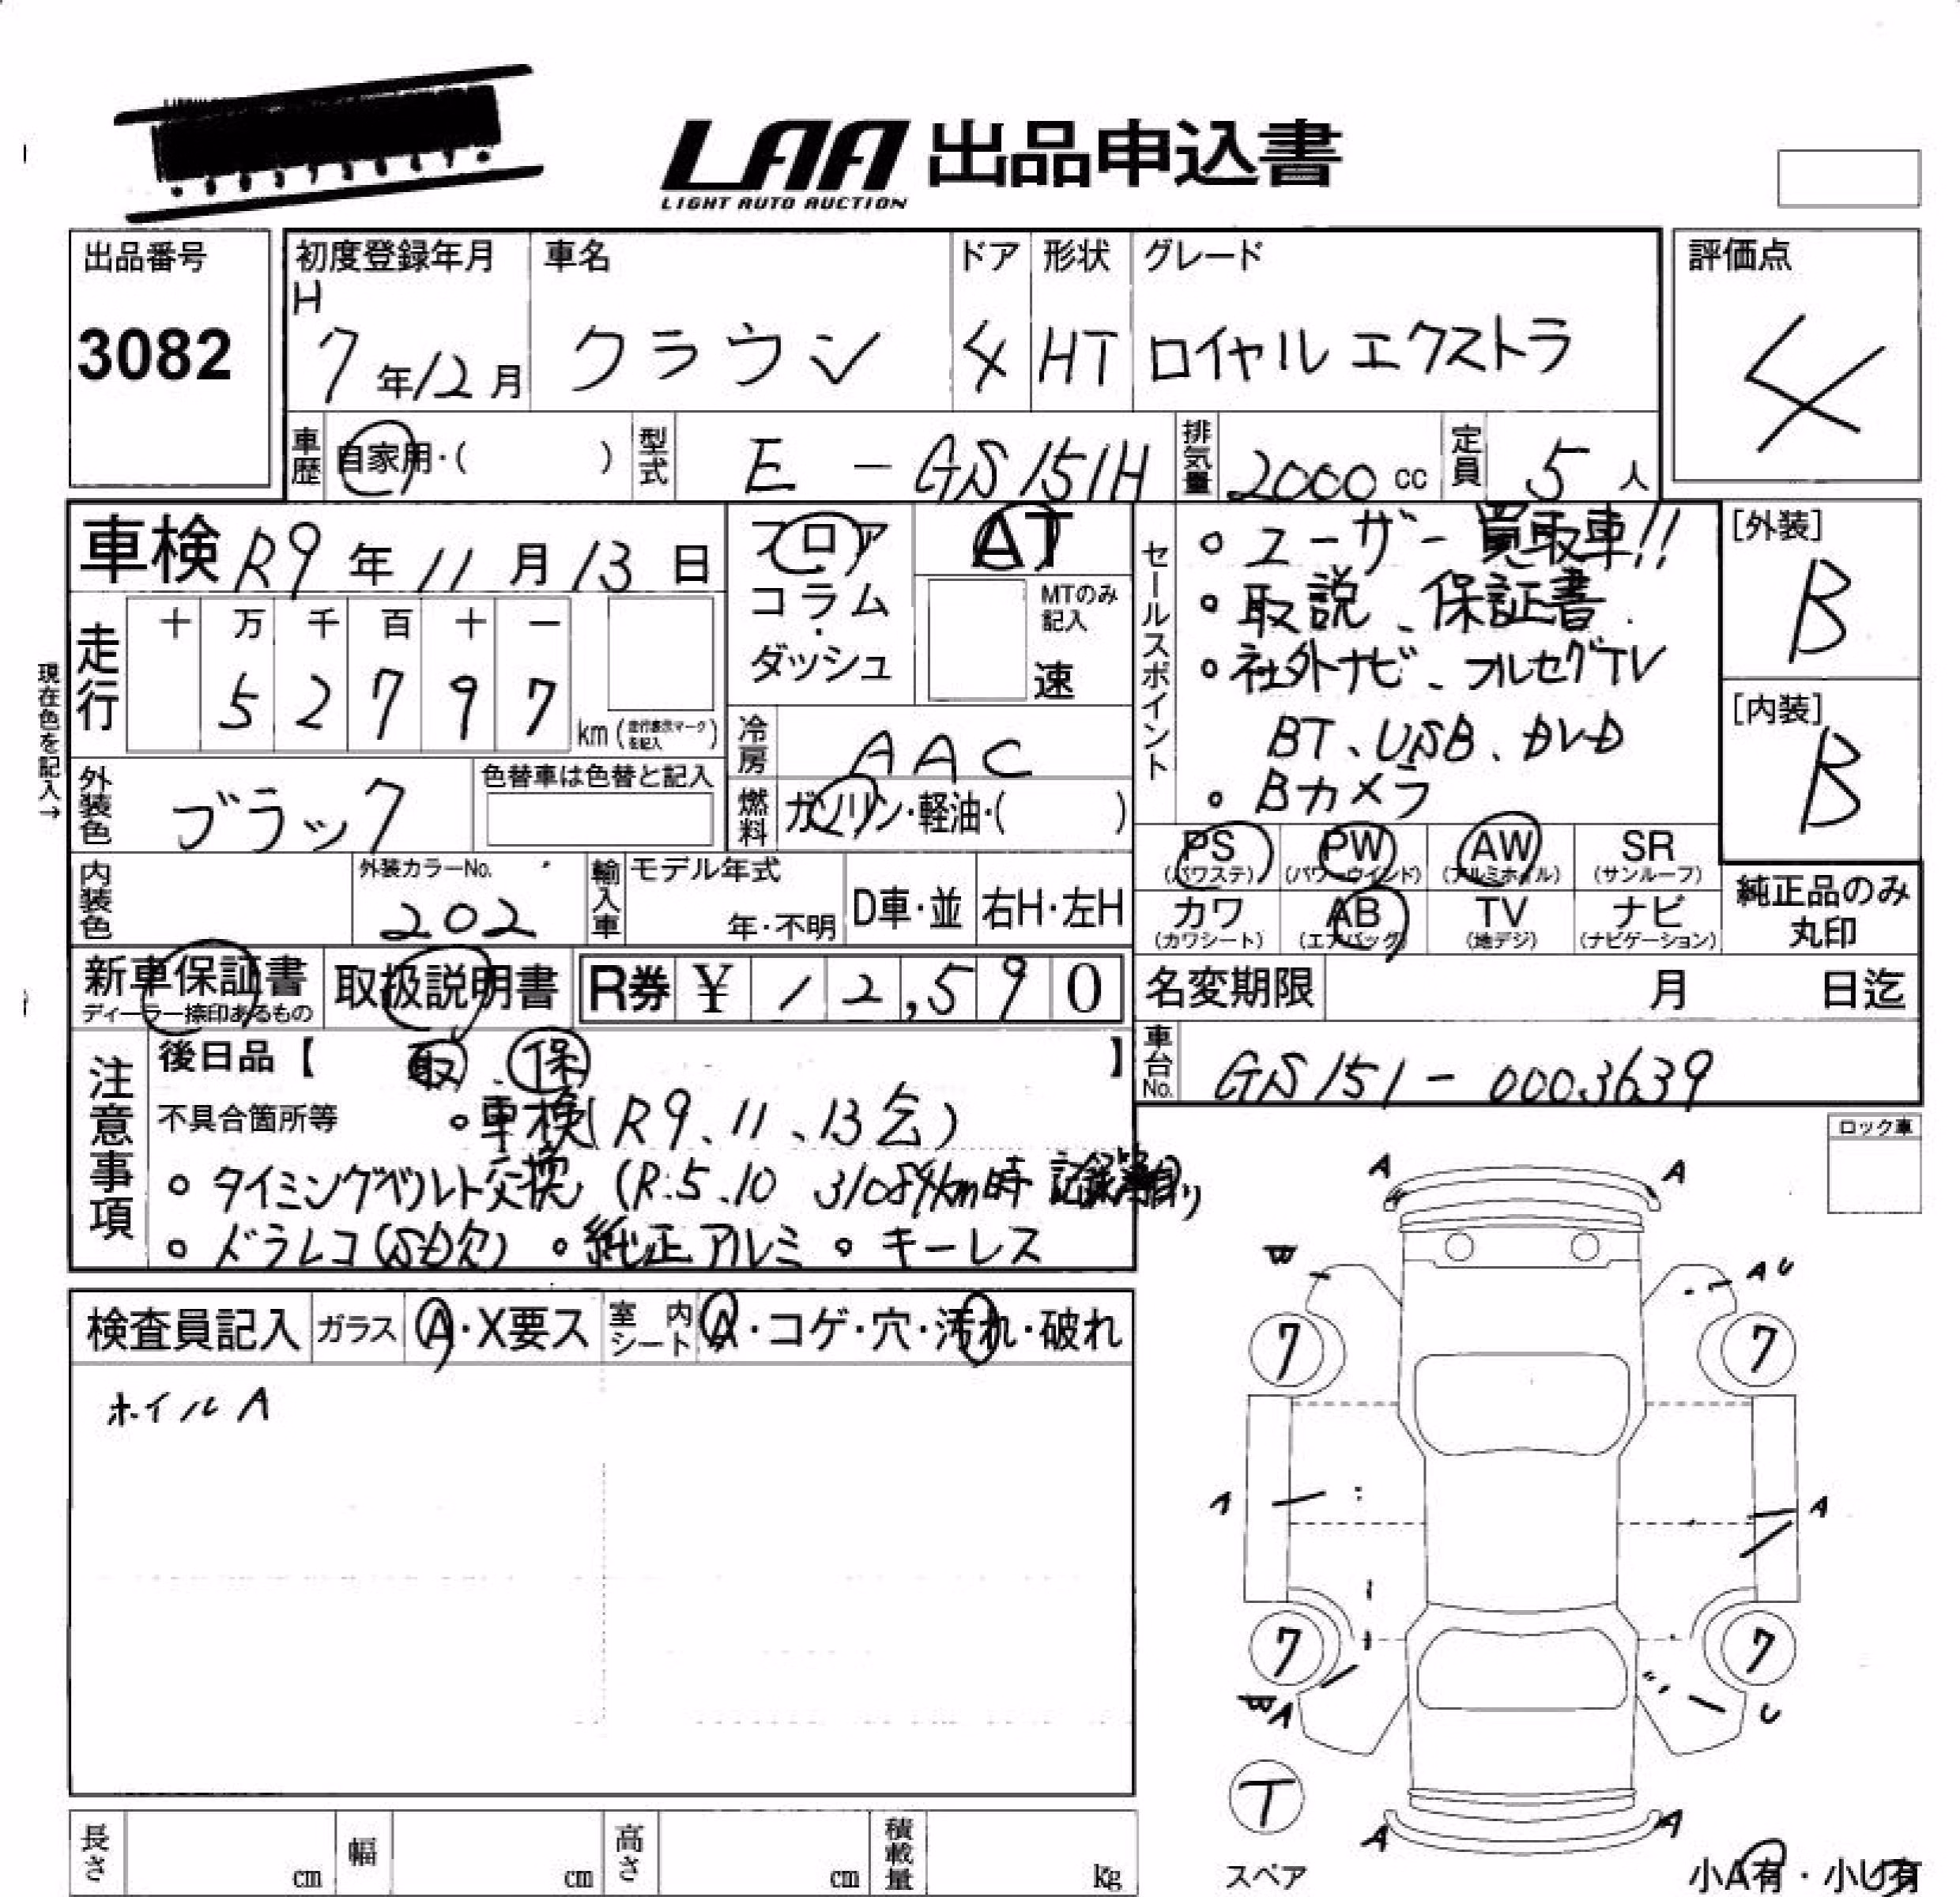 LAA 出品申込書
LIGHT AUTO AUCTION
出品番号
3082
初度登録年月
H
7年12月
車名
クラウン
ドア
4
形状
HT
グレード
ロイヤル エクストラ
評価点
4
車歴
自家用・( )
型式
E - GS151H
排気量
2000 cc
定員
5 人
車検 R9年 11月 13日
走行
十 万 千 百 十 一
5 2 7 9 7
km (走行表示マークを記入)
現在色を記入→
フロア
コラム
・
ダッシュ
AT
MTのみ
記入
速
冷房
AAC
燃料
ガソリン・軽油・( )
外装色
ブラック
色替車は色替と記入
内装色
外装カラーNo.
202
輸入車
モデル年式
年・不明
D車・並
右H・左H
セールスポイント
○ ユーザー買取車!!
○ 取説、保証書
○ 社外ナビ、フルセグTV
BT、USB、DVD
○ Bカメラ
[外装]
B
[内装]
B
PS
(パワステ)
PW
(パワーウインド)
AW
(アルミホイル)
SR
(サンルーフ)
カワ
(カワシート)
AB
(エアバッグ)
TV
(地デジ)
ナビ
(ナビゲーション)
純正品のみ
丸印
新車保証書
ディーラー捺印あるもの
取扱説明書
R券 ¥ 12,590
名変期限 月 日迄
車台No.
GS151-0003639
注意事項
後日品【 取 保 】
不具合箇所等
○車検(R9、11、13迄)
○ タイミングベルト交換 (R.5.10 31084km時
○ ドラレコ(SD欠) ○純正アルミ ○ キーレス
検査員記入
ガラス
A・X要ス
室内
シート
A・コゲ・穴・汚れ・破れ
ホイルA
ロック車
A
A
W
A U
7
7
A
A
7
7
W A
U
T
スペア
A
A
小A有・小U有
長さ
cm
幅
cm
高さ
cm
積載量
kg